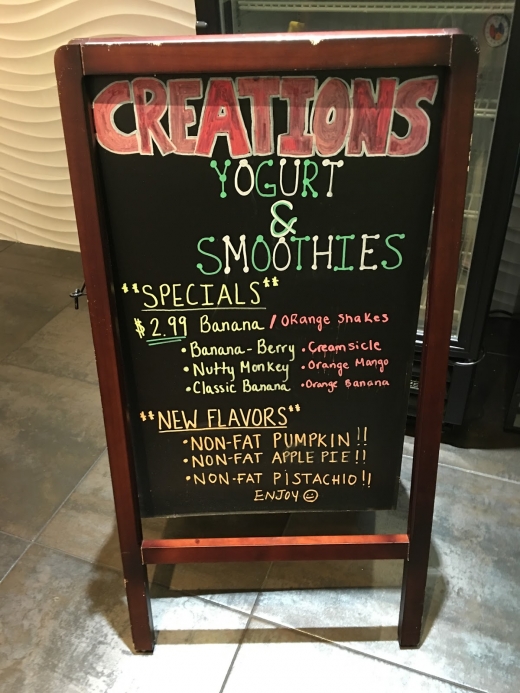 CREATIONS
YOGURT
&
SMOOTHIES
**SPECIALS**
$2.99 Banana / Orange Shakes
•Banana-Berry •Creamsicle
•Nutty Monkey •Orange Mango
•Classic Banana •Orange Banana
**NEW FLAVORS**
•NON-FAT PUMPKIN!!
•NON-FAT APPLE PIE!!
•NON-FAT PISTACHIO!!
ENJOY☺